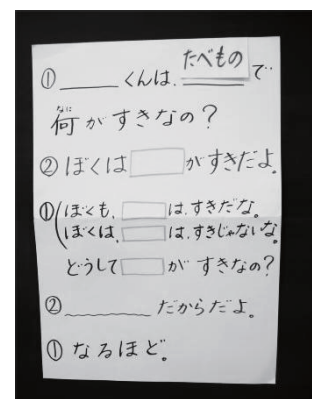 ① ＿＿＿くんは、たべもので
何がすきなの？
なに
② ぼくは□がすきだよ。
① ぼくも、□は、すきだな。
ぼくは、□は、すきじゃないな。
どうして□がすきなの？
② ＿＿＿だからだよ。
① なるほど。